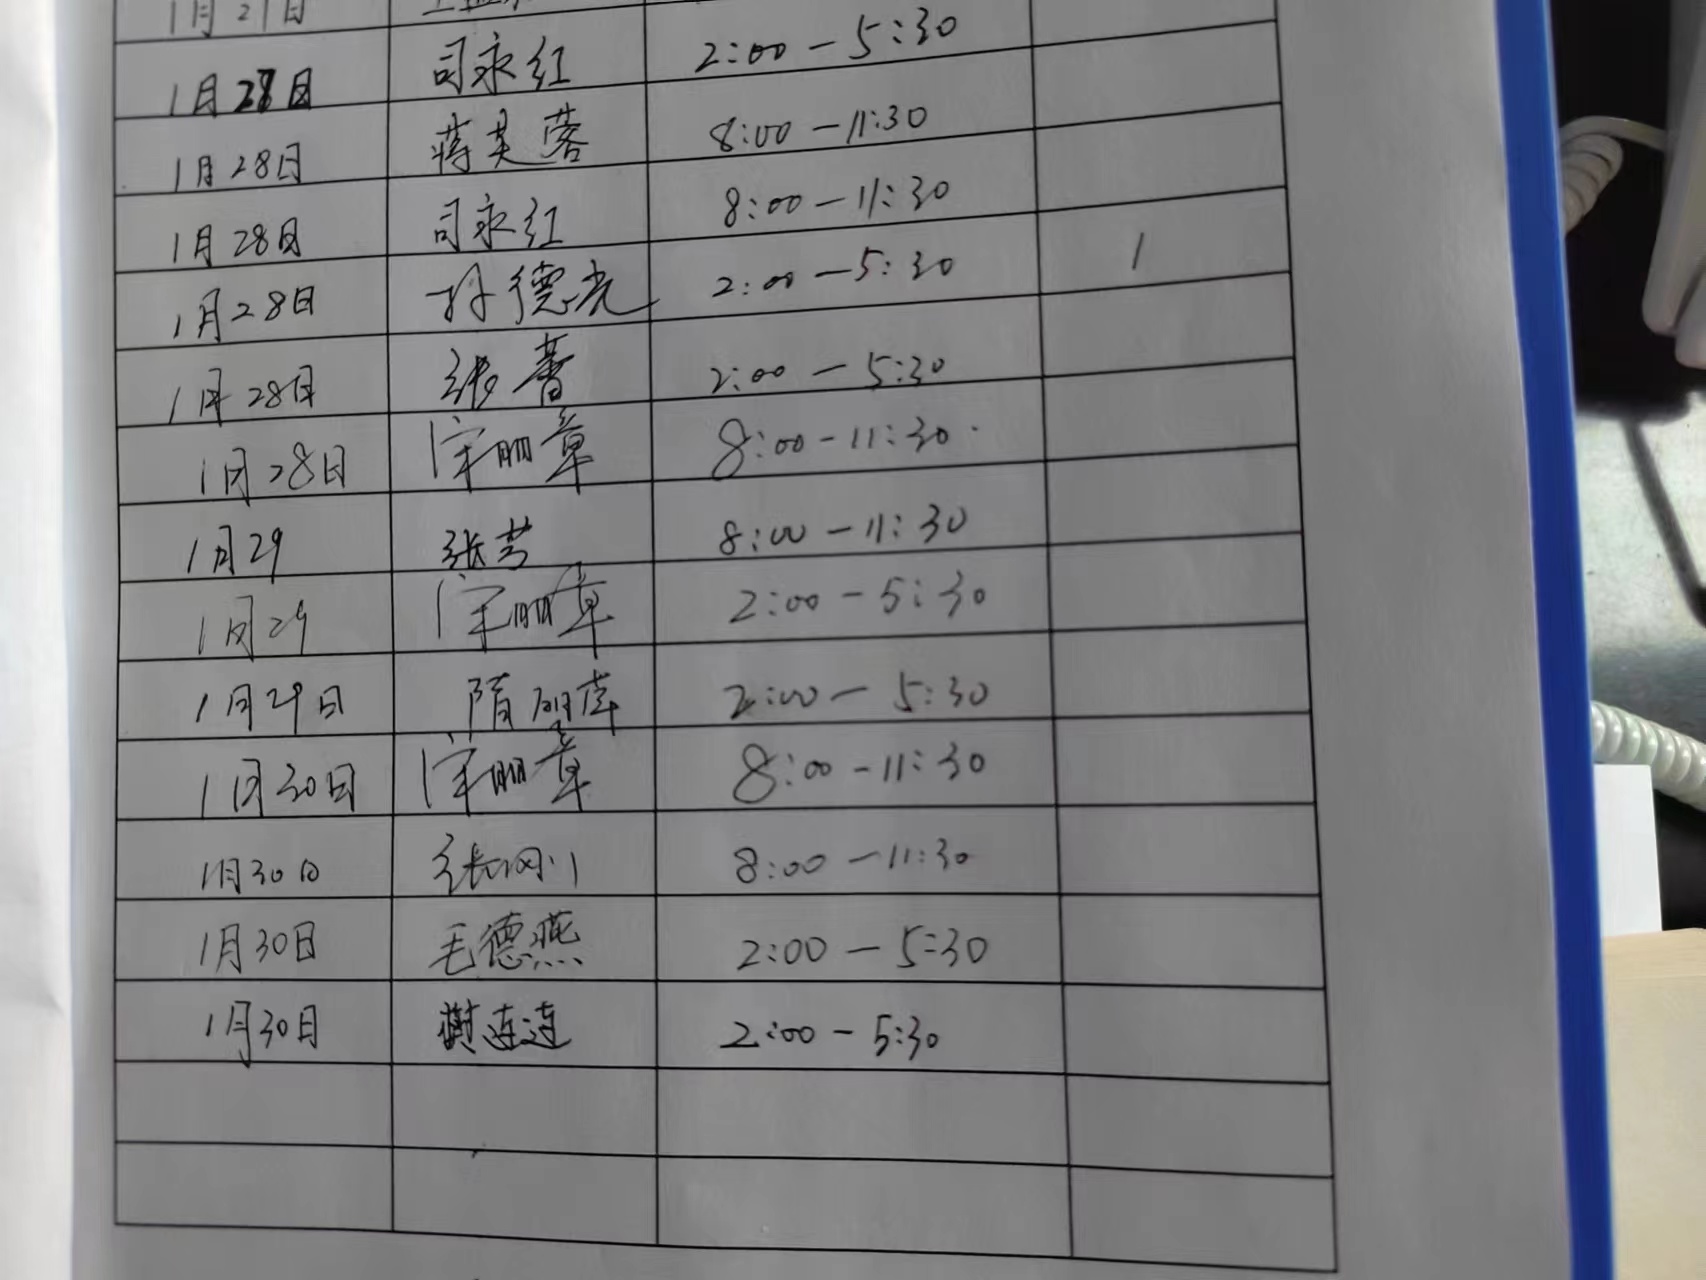 1月27日
1月28日 司永红 2:00-5:30
1月28日 蒋芙蓉 8:00-11:30
1月28日 司永红 8:00-11:30
1月28日 孙德光 2:00-5:30 1
1月28日 张蕾 2:00-5:30
1月28日 宋丽章 8:00-11:30
1月29 张芸 8:00-11:30
1月29 宋丽章 2:00-5:30
1月29日 隋 2:00-5:30
1月30日 宋丽章 8:00-11:30
1月30日 张刚 8:00-11:30
1月30日 毛德燕 2:00-5:30
1月30日 连连 2:00-5:30